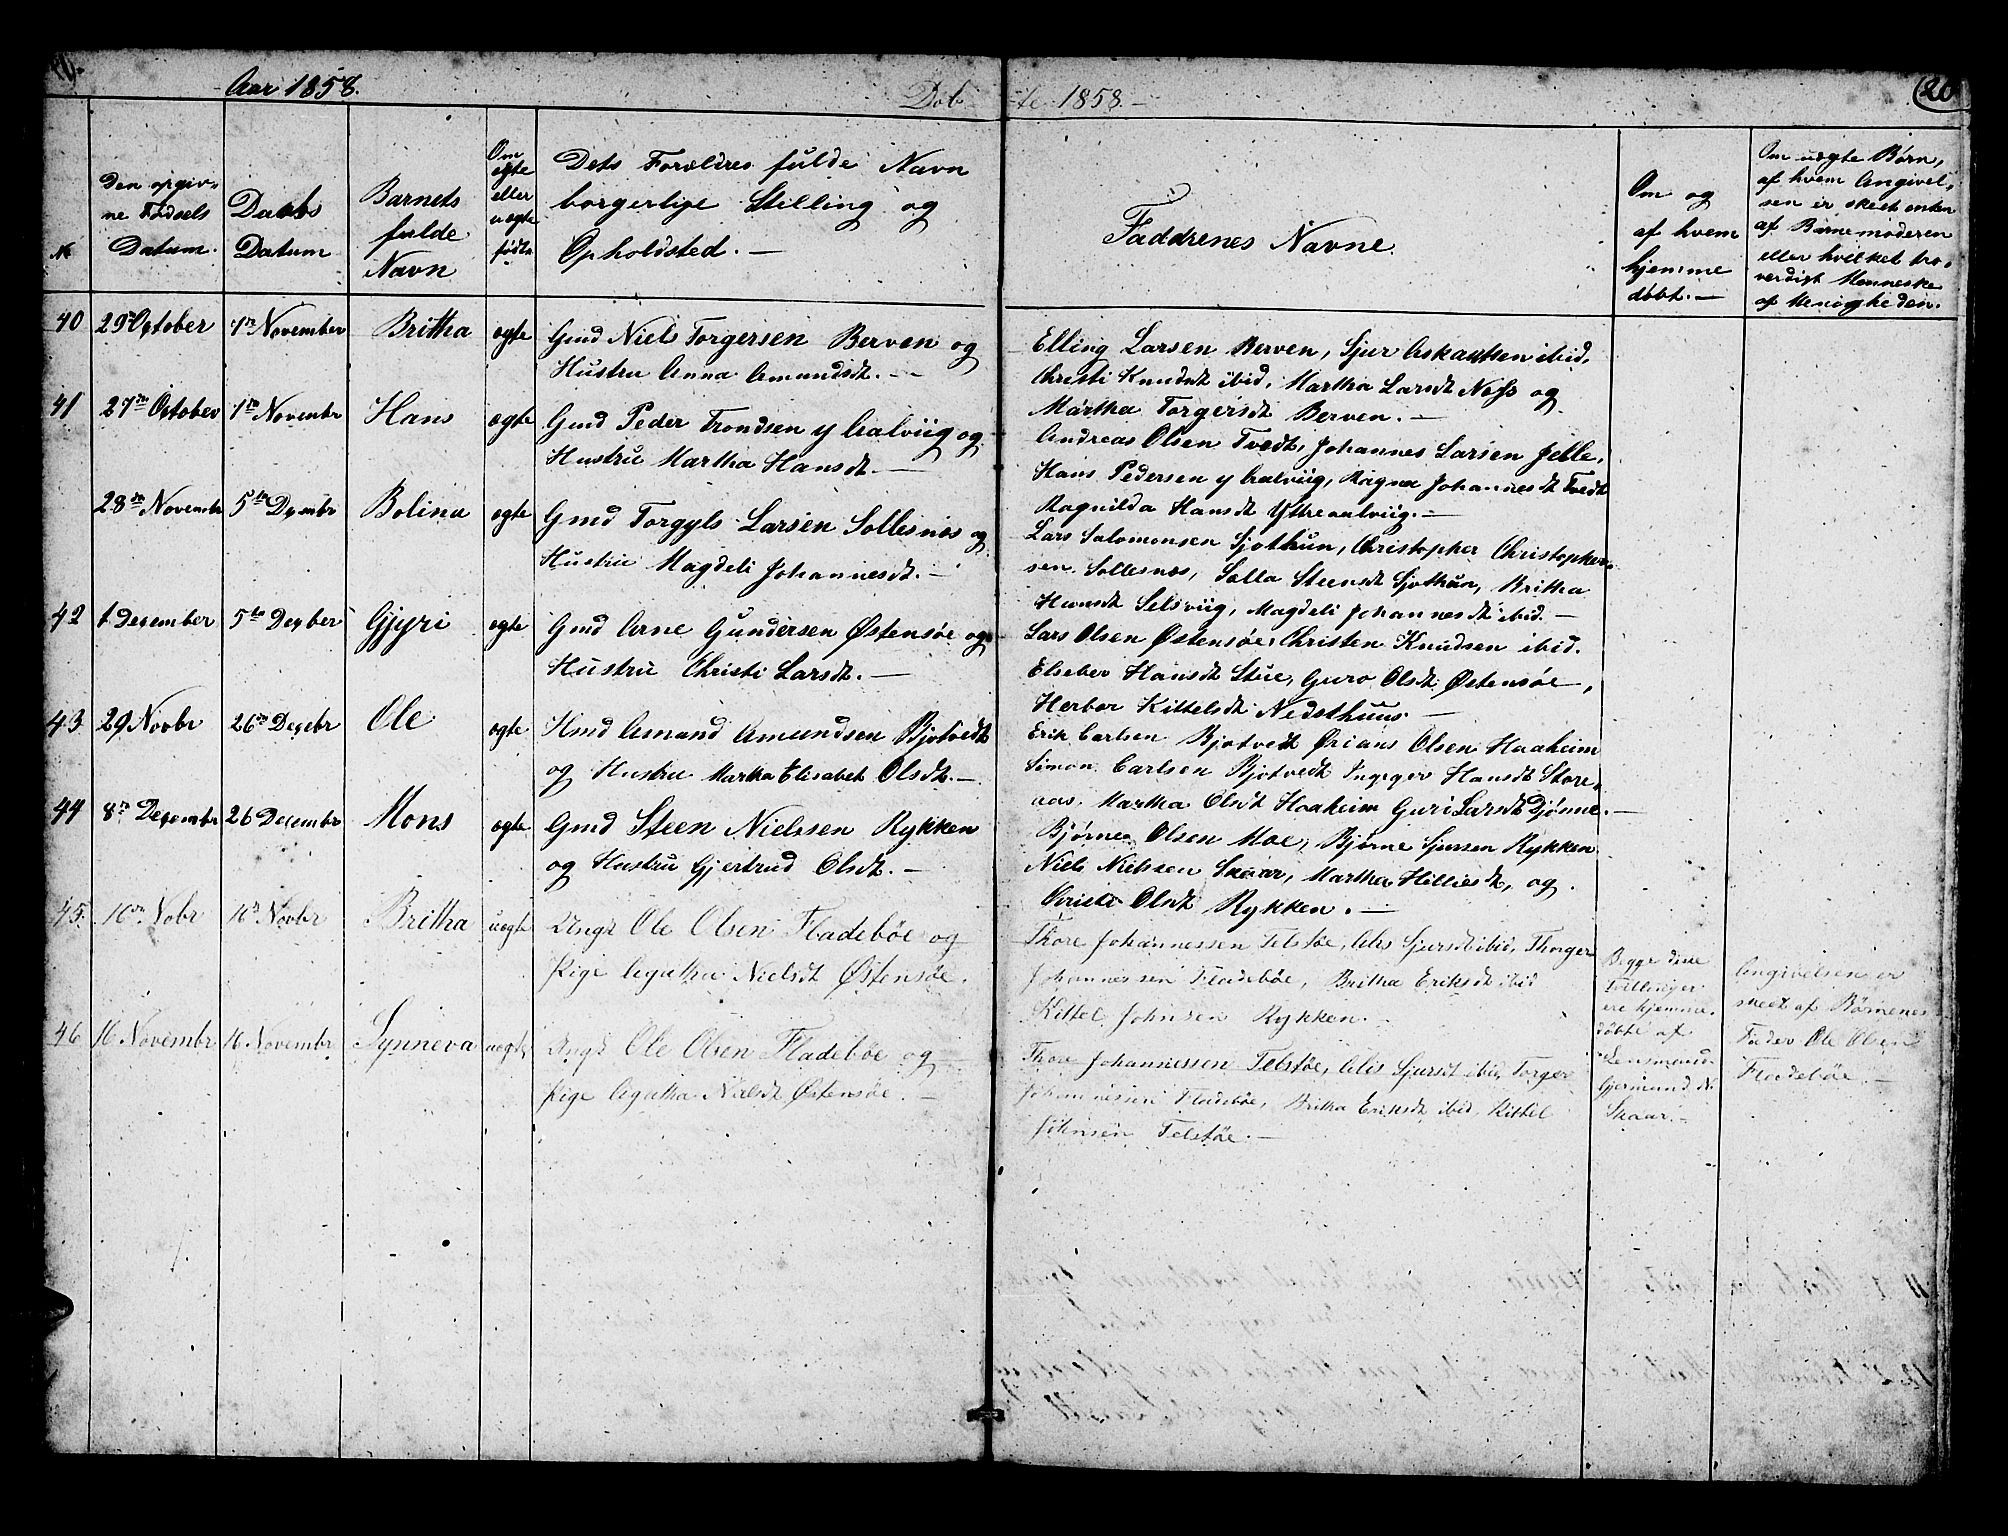 Aar 1858.
Døbte 1858.
20
№
Den opgiv-
ne Fødsels
Datum.
Daabs
Datum
Barnets
fulde
Navn
Om
egte
eller
uegte
født.
Dets Forældres fulde Navn
borgerlige Stilling og
Opholdsted. —
Faddrenes Navne.
Om og
af hvem
hjemme
døbt. —
Om uegte Børn,
af hvem Angivel,
sen er skeet enten
af Barnemoderen
eller hvilket tro,
verdigt Menneske
af Menigheden.
40 29 October 7de November Britha egte Gmd Niels Torgersen Berven og
Hustru Anna Amundsdt. —
Elling Larsen Berven, Sjur Askautsen ibid,
Christi Knudsdt ibid, Martha Larsdt Næss og
Martha Torgersdt Berven. —
41 27de October 7de Novembr Hans egte Gmd Peder Trondsen y Aalviig og
Hustru Martha Hansdt. —
Andreas Olsen Tvedt, Johannes Larsen Jelle,
Hans Pedersen y Aalviig, Ragna Johannesdt Tvedt
Ragnilda Hansdt Ytreaalviig. —
28de Novembr 5te Decembr Bolina egte Gmd Torgyls Larsen Sollesnæs og
Hustru Magdeli Johannesdt. —
Lars Salomonsen Sjothun, Christopher Christopher-
sen Sollesnæs, Salla Steensdt Sjothun, Britha
Hansdt Selsviig, Magdeli Johannesdt ibid. —
42 1 December 5te Decber Gjyri egte Gmd Arne Gundersen Østensøe og
Hustru Christi Larsdt. —
Lars Olsen Østensøe, Christen Knudsen ibid.
Elseber Hansdt Stue, Guro Olsdt Østensøe,
Herbor Kittelsdt Nedsthuus —
43 29 Novbr 26de Decebr Ole egte Hmd Amund Amundsen Bjotvedt
og Hustru Martha Elisabet Olsdt. —
Erik Carlsen Bjotvedt Ørians Olsen Haaheim
Simon Carlsen Bjotvedt Ingeger Hansdt Store,
aas, Martha Olsdt Haaheim Guri Larsdt Djønne. —
44 8de Decembr 26 Decembr Mons egte Gmd Steen Nielssen Rykken
og Hustru Gjertrud Olsdt. —
Bjørne Olsen Moe, Bjørne Sjursen Rykken
Niels Nielssen Skaar, Martha Hilliesdt, og
Christi Olsdt Rykken. —
45. 16de Nobr 16de Novbr Britha uegte Ungk Ole Olsen Fladebøe og
Pige Agatha Nielsdt Østensøe.
Thore Johannessen Telstøe, Alis Sjursdt ibid, Thorger
Johannessen Fladebøe, Britha Eriksdt ibid
Kittel Johnsen Rykken. —
46 16 Novembr 16 Novembr Synneva uegte Ungk Ole Olsen Fladebøe og
Pige Agatha Nielsdt Østensøe. —
Thore Johannessen Telstøe, Alis Sjursdt ibid, Torger
Johannessen Fladebøe, Britha Eriksdt ibid, Kittel
Johnsen Telstøe. —
Begge disse
Tvillinger
ere hjemme-
døbte af
Lensmand
Gjermund N.
Skaar. —
Angivelsen er
skeet af Børnenes
Fader Ole Olsen
Fladebøe. —